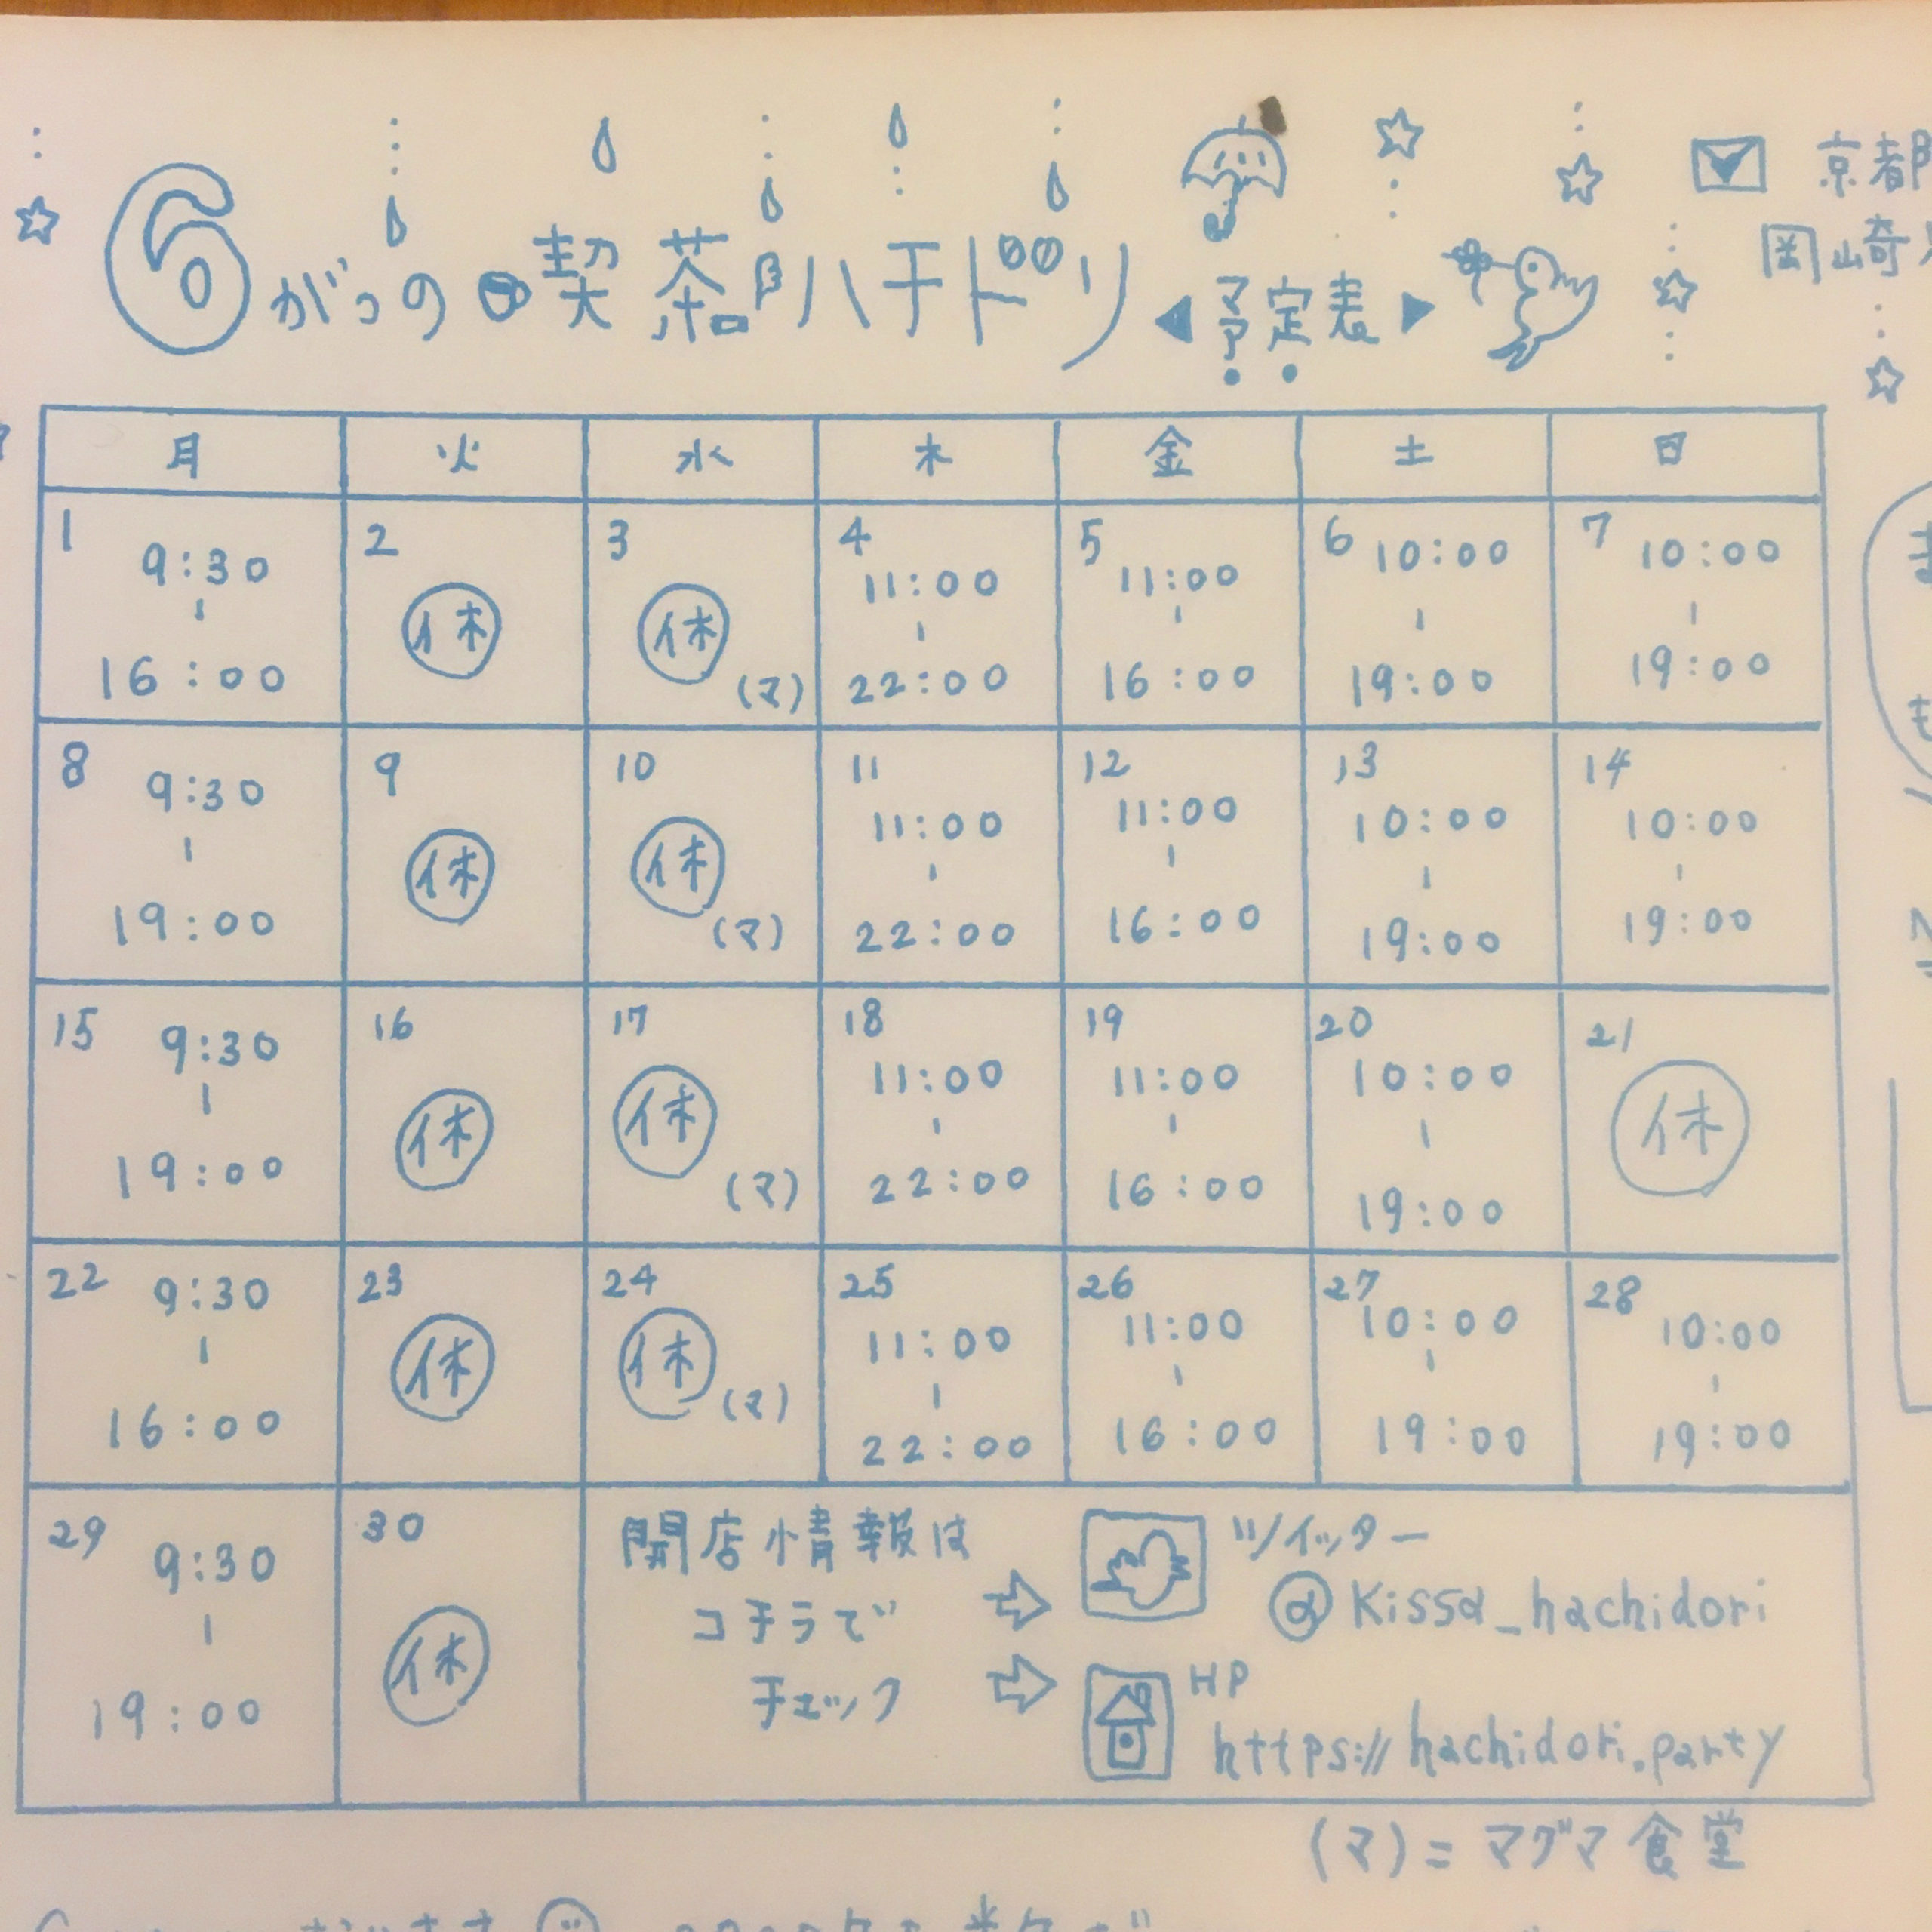 6がつの喫茶部ハチドリ
◀予定表▶
京都
岡崎
月 火 水 木 金 土 日
1 9:30 - 16:00
2 休
3 休 (マ)
4 11:00 - 22:00
5 11:00 - 16:00
6 10:00 - 19:00
7 10:00 - 19:00
8 9:30 - 19:00
9 休
10 休 (マ)
11 11:00 - 22:00
12 11:00 - 16:00
13 10:00 - 19:00
14 10:00 - 19:00
15 9:30 - 19:00
16 休
17 休 (マ)
18 11:00 - 22:00
19 11:00 - 16:00
20 10:00 - 19:00
21 休
22 9:30 - 16:00
23 休
24 休 (マ)
25 11:00 - 22:00
26 11:00 - 16:00
27 10:00 - 19:00
28 10:00 - 19:00
29 9:30 - 19:00
30 休
開店情報は
コチラで
チェック
ツイッター
@kissa_hachidori
HP
https://hachidori.party
(マ)=マグマ食堂